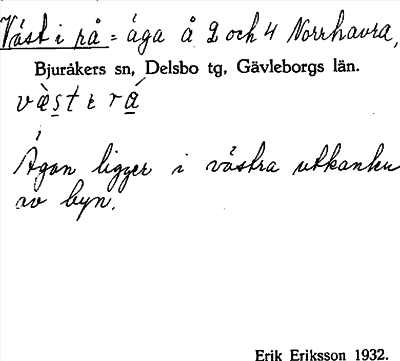 Väst i rå = äga å 2 och 4 Norrhavra,
Bjuråkers sn, Delsbo tg, Gävleborgs län.
væ̀st ɩ rá
i
Ägan ligger i västra utkanten
av byn.
Erik Eriksson 1932.